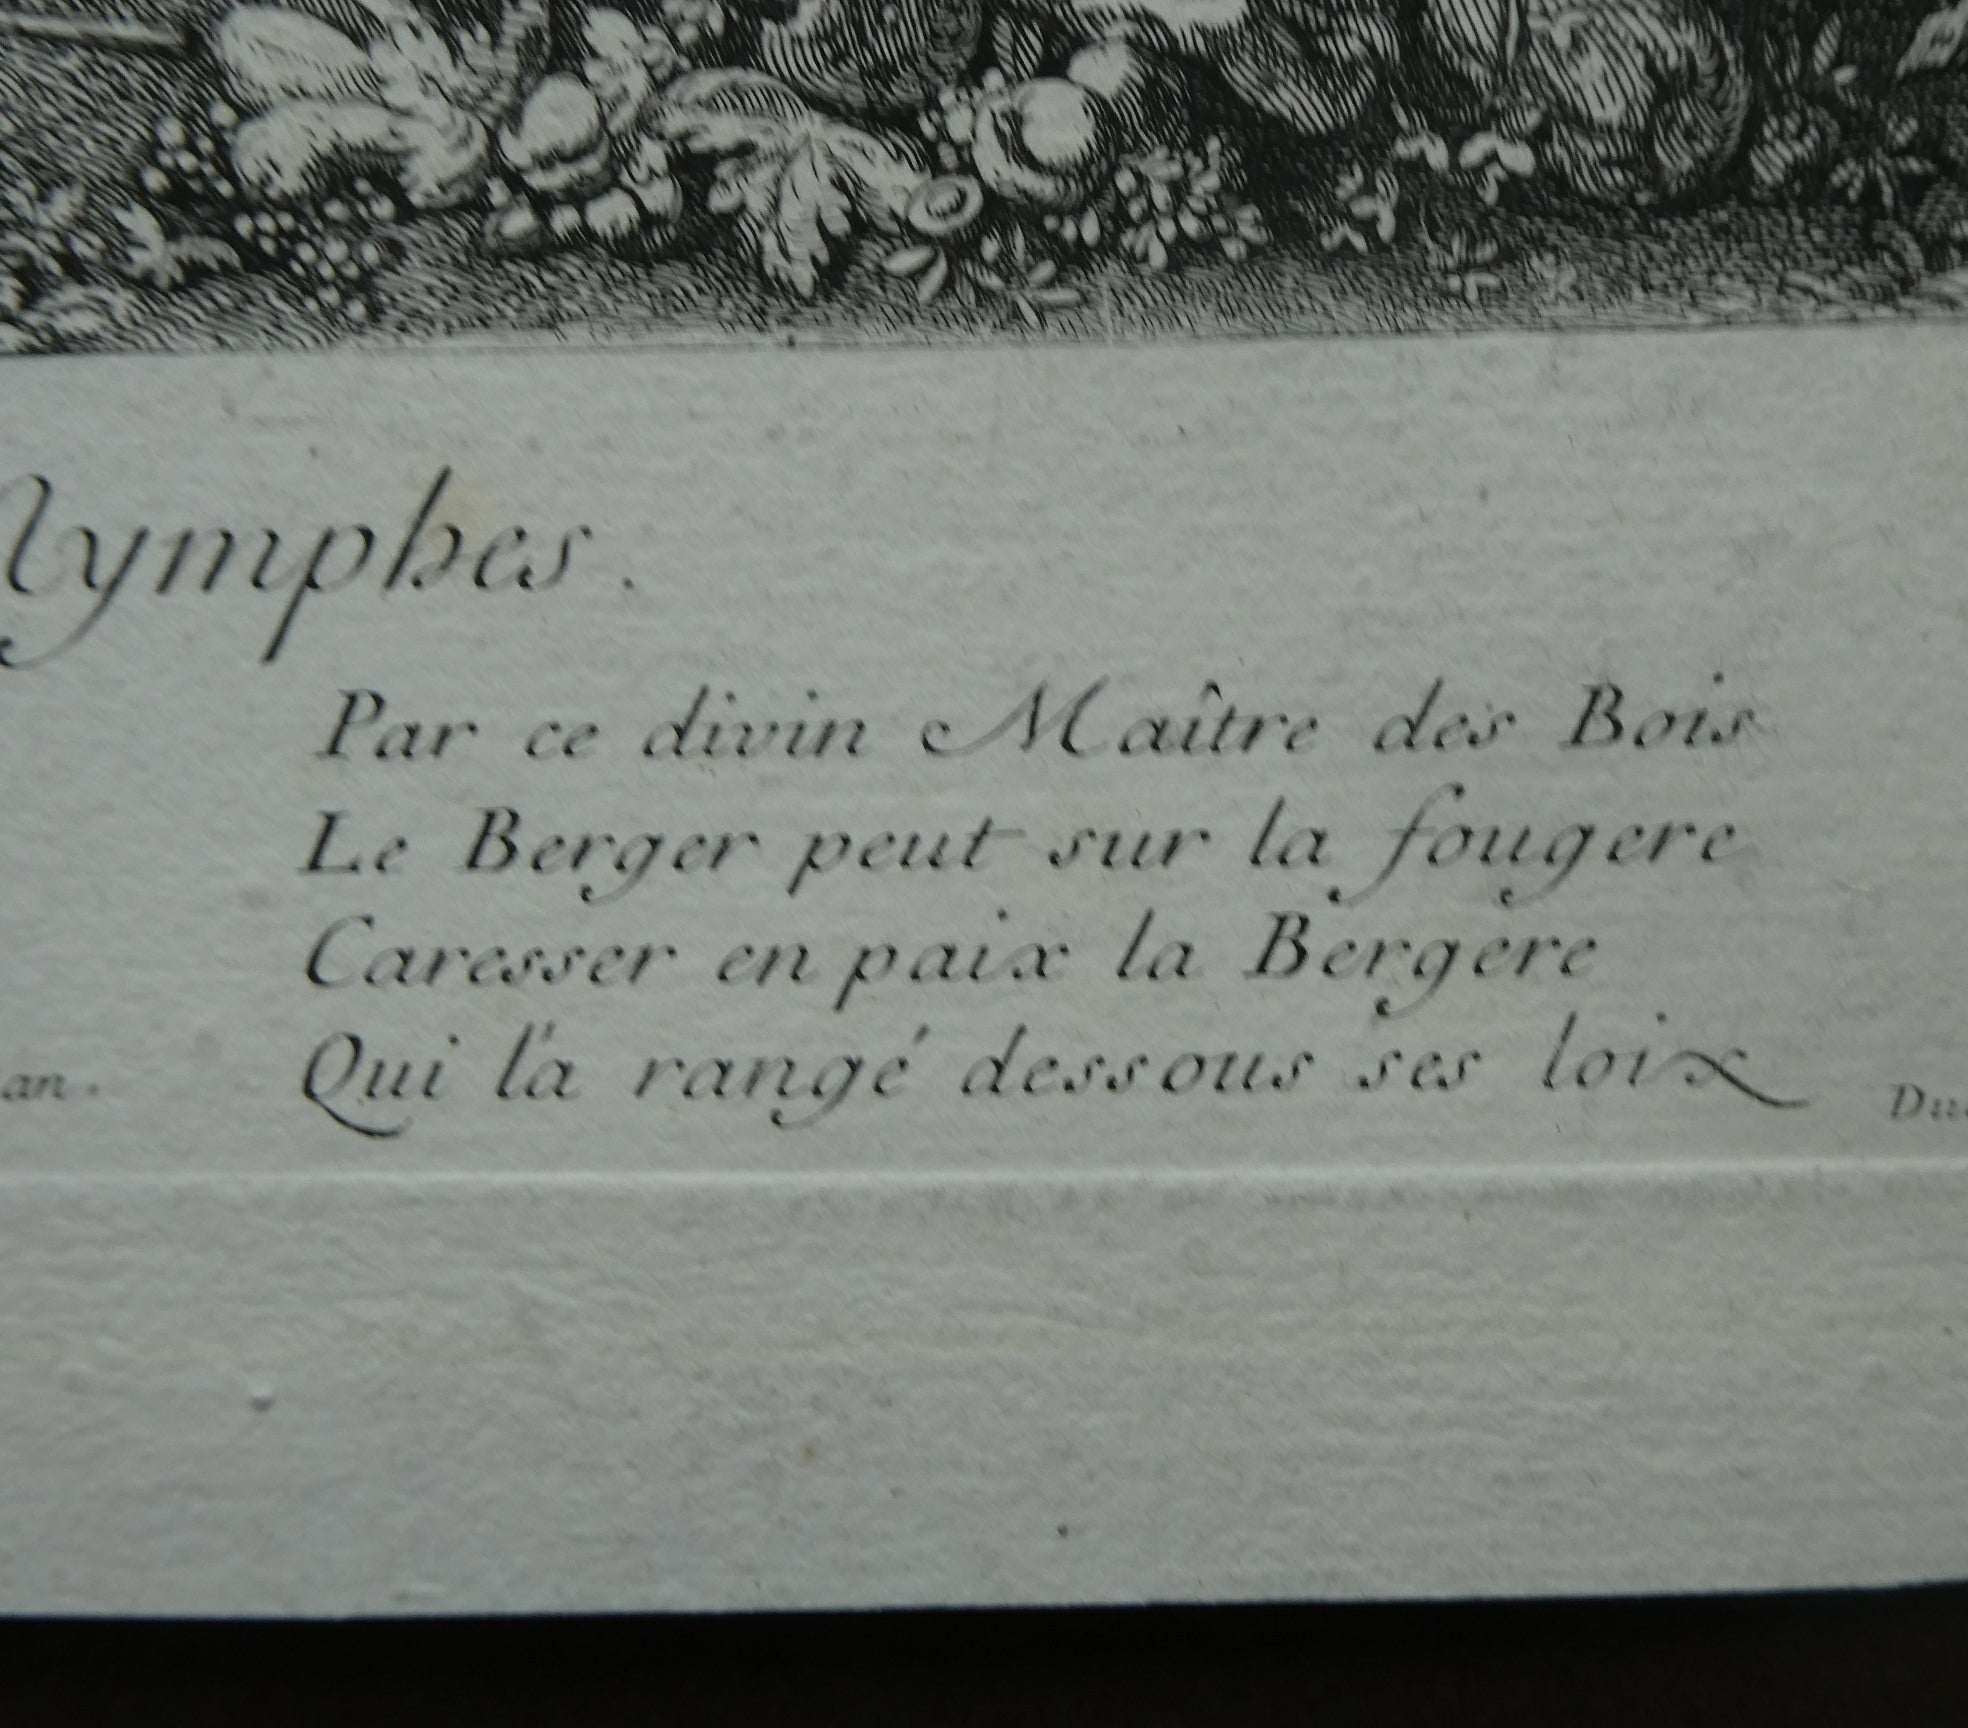 Nymphes.
Par ce divin Maître des Bois
Le Berger peut sur la fougere
Caresser en paix la Bergere
Qui l'a rangé dessous ses loix